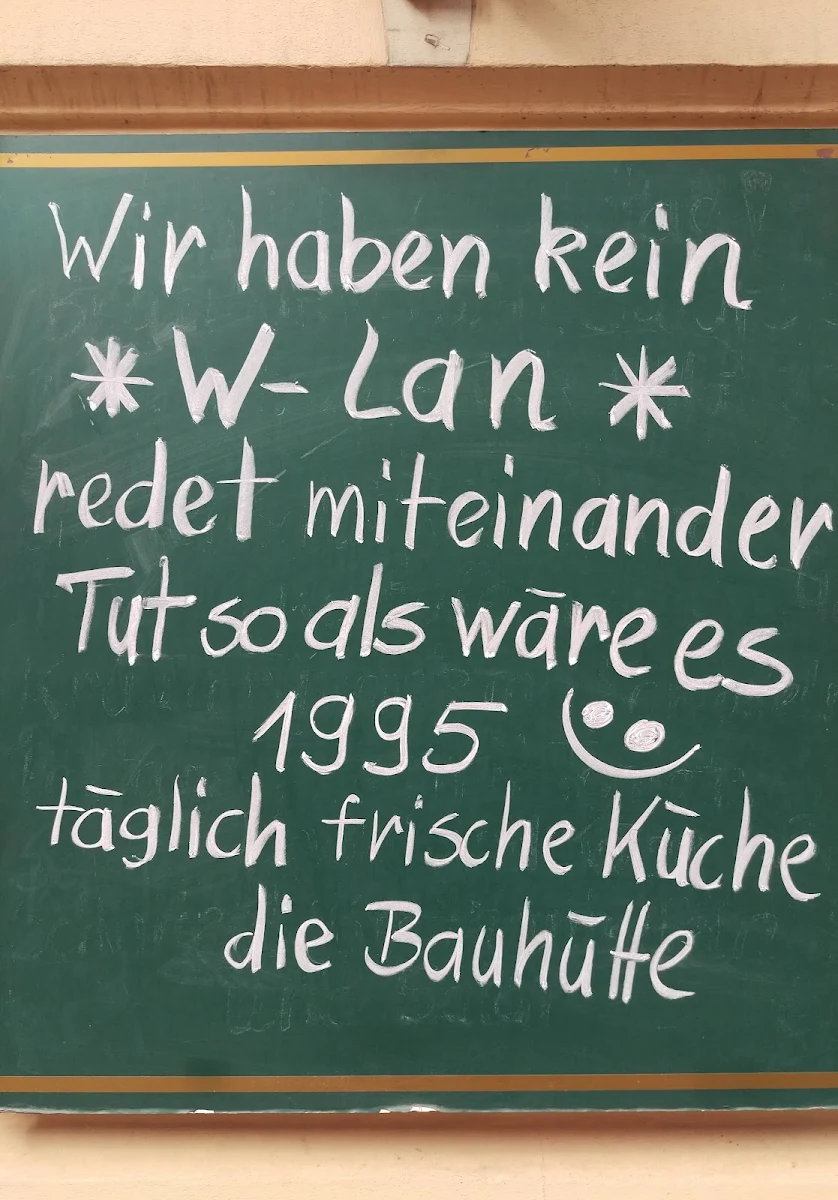 Wir haben kein
* W-Lan *
redet miteinander
Tut so als wäre es
1995
täglich frische Küche
die Bauhütte